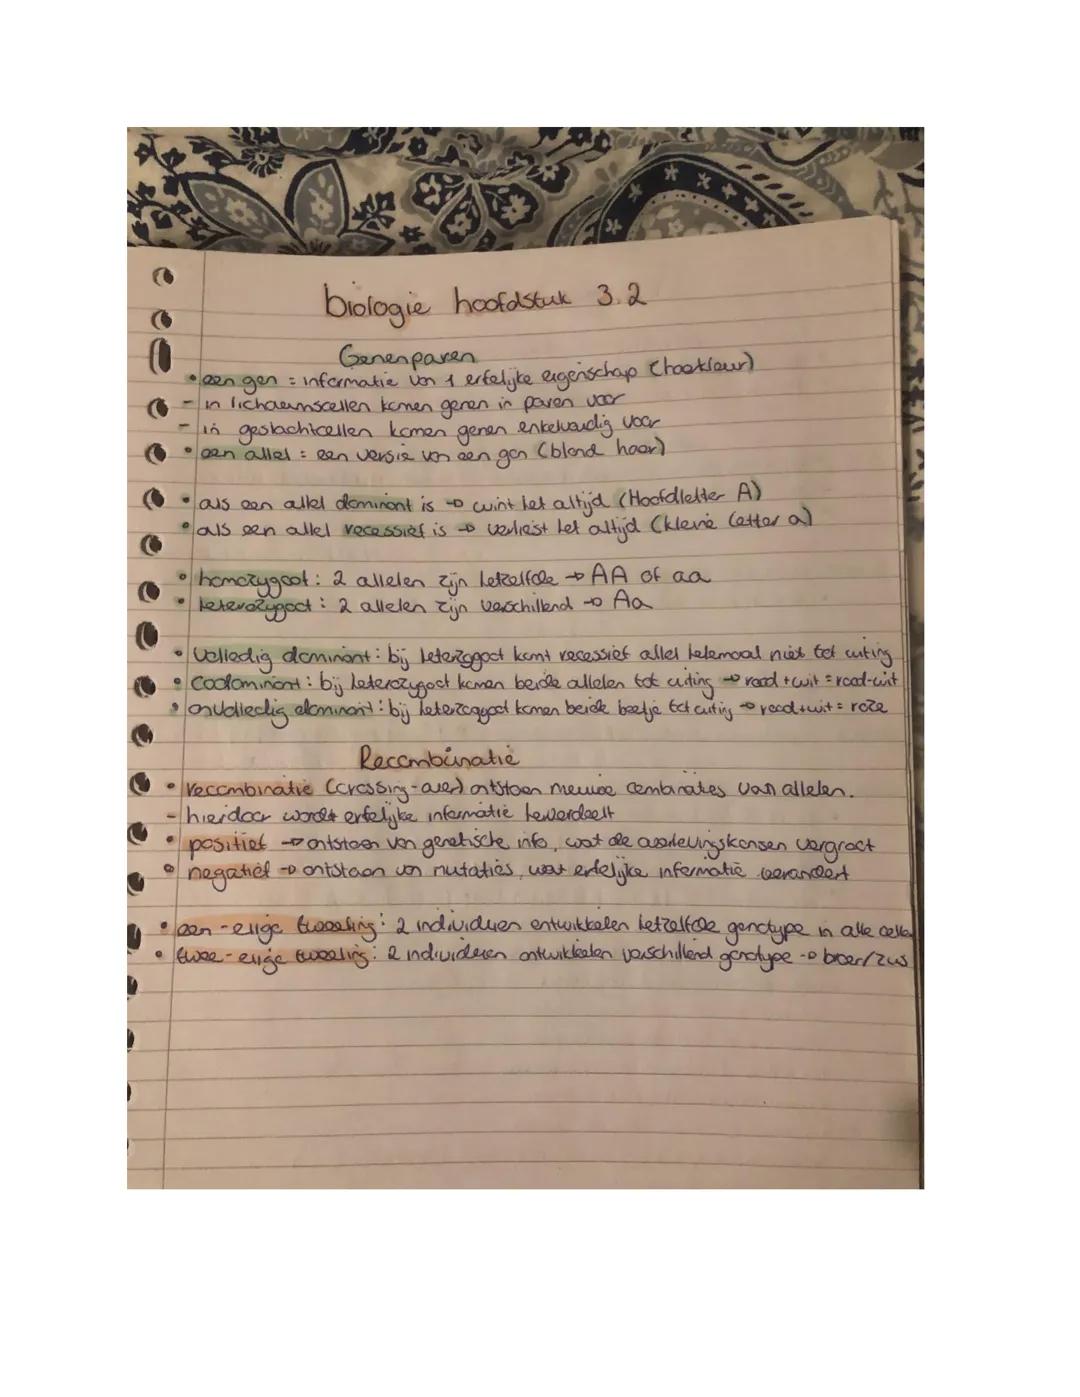 biologie hoofdstuk 3.2
Genenparen
• een gen = informatie van 1 erfelijke eigenschap (haarkleur)
- in lichaamscellen komen genen in paren voor
- in geslachtcellen komen genen enkelvoudig voor
• een allel = een versie van een gen (blond haar)
• als een allel dominant is → wint het altijd (Hoofdletter A)
• als een allel recessief is → verliest het altijd (kleine letter a)
• homozygoot: 2 allelen zijn hetzelfde → AA of aa
• heterozygoot: 2 allelen zijn verschillend → Aa
• Volledig dominant: bij heterzygoot komt recessief allel helemaal niet tot uiting
• Codominant: bij heterozygoot komen beide allelen tot uiting → rood + wit = rood-wit
• onvolledig dominant: bij heterozygoot komen beide beetje tot uiting → rood + wit = roze
Recombinatie
• recombinatie (crossing-over) ontstaan nieuwe combinaties van allelen.
- hierdoor wordt erfelijke informatie herverdeelt
• positief → ontstaan van genetische info, wat de overlevingskansen vergroot
• negatief → ontstaan van mutaties, wat erfelijke informatie verandert
• een-eiige tweeling: 2 individuen ontwikkelen hetzelfde genotype in alle cellen
• twee-eiige tweeling: 2 individuen ontwikkelen verschillend genotype → broer/zus